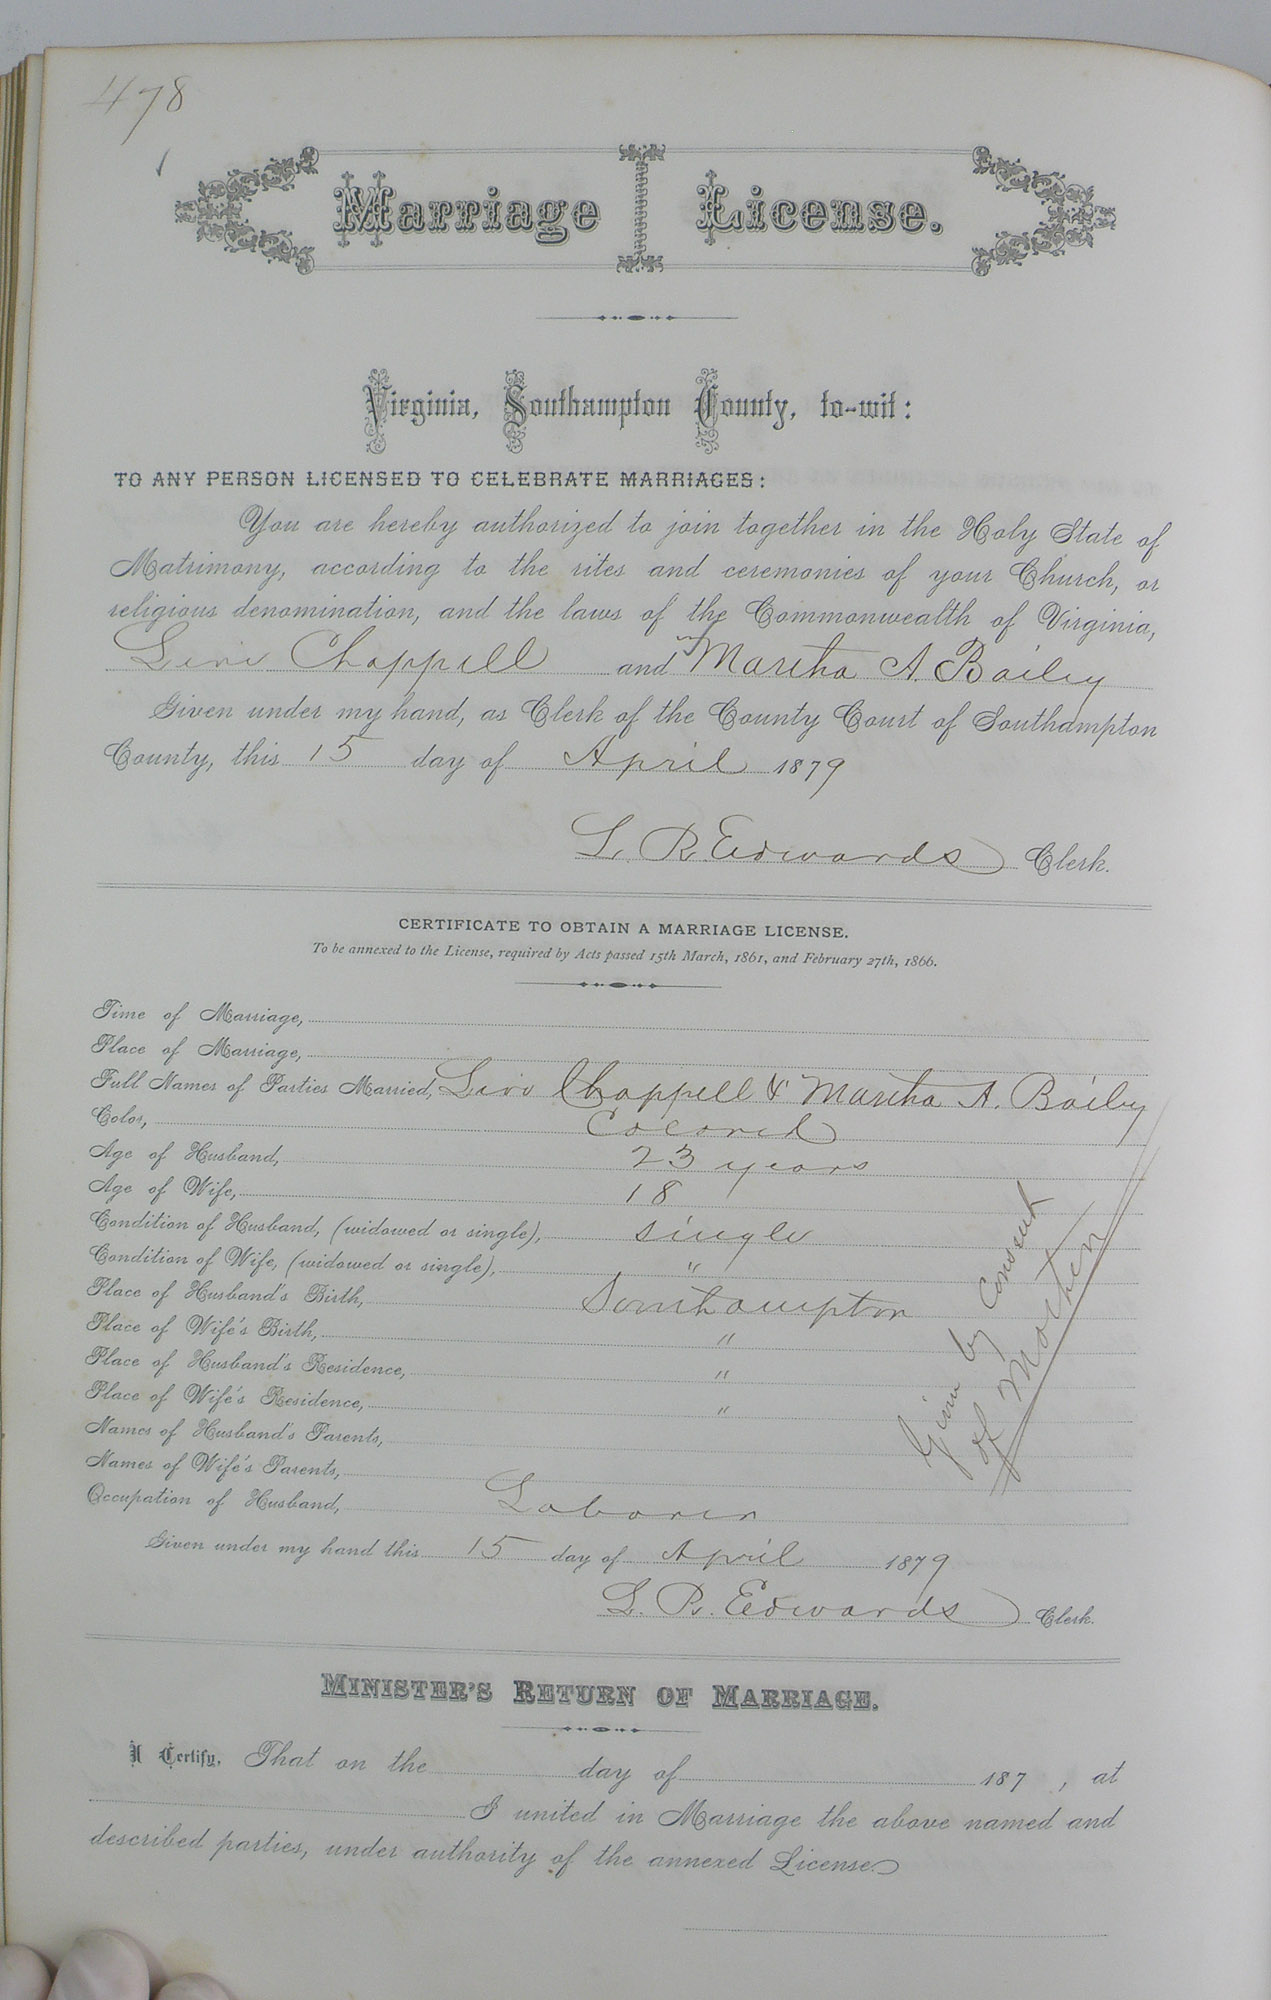 478
Marriage License.
Virginia, Southampton County, to-wit:
TO ANY PERSON LICENSED TO CELEBRATE MARRIAGES:
You are hereby authorized to join together in the Holy State of
Matrimony, according to the rites and ceremonies of your Church, or
religious denomination, and the laws of the Commonwealth of Virginia,
Levi Chappell and Martha A. Bailey
Given under my hand, as Clerk of the County Court of Southampton
County, this 15 day of April 1879
L. R. Edwards Clerk.
CERTIFICATE TO OBTAIN A MARRIAGE LICENSE.
To be annexed to the License, required by Acts passed 15th March, 1861, and February 27th, 1866.
Time of Marriage,
Place of Marriage,
Full Names of Parties Married, Levi Chappell & Martha A. Bailey
Color, Colored
Age of Husband, 23 years
Age of Wife, 18
Condition of Husband, (widowed or single), single
Condition of Wife, (widowed or single), "
Place of Husband's Birth, Southampton
Place of Wife's Birth, "
Place of Husband's Residence, "
Place of Wife's Residence, "
Names of Husband's Parents,
Names of Wife's Parents,
Occupation of Husband, Laborer
Given by consent
of Mother
Given under my hand this 15 day of April 1879
L. R. Edwards Clerk.
MINISTER'S RETURN OF MARRIAGE.
I Certify, That on the day of 187 , at
I united in Marriage the above named and
described parties, under authority of the annexed License.